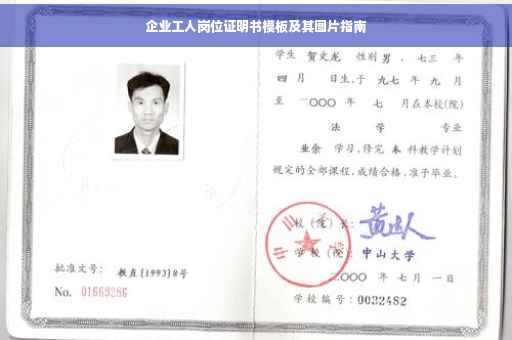 企业工人岗位证明书模板及其图片指南
学生 贺文龙 性别 男 、七三 年
四 月 日生,于 九七 年 九 月
至 二〇〇〇 年 七 月在本校(院)
法 学 专业
业余 学习,修完 本 科教学计划
规定的全部课程,成绩合格,准予毕业。
校(院)长:
学校(院): 中山大学
二〇〇〇 年 七 月 一 日
批准文号: 教直[1993]8号
No. 01669286
学校编号: 0032482